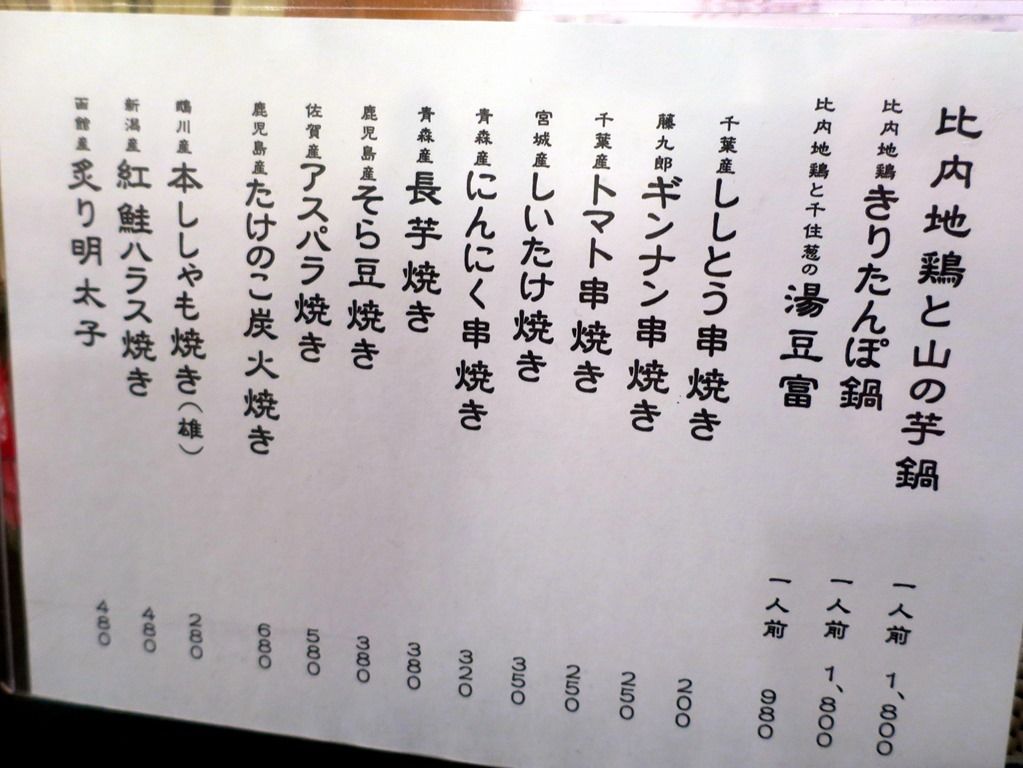 比内地鶏と山の芋鍋 一人前 1,800
比内地鶏きりたんぽ鍋 一人前 1,800
比内地鶏と千住葱の湯豆富 一人前 980
千葉産ししとう串焼き 200
藤九郎ギンナン串焼き 250
千葉産トマト串焼き 250
宮城産しいたけ焼き 350
青森産にんにく串焼き 320
青森産長芋焼き 380
鹿児島産そら豆焼き 380
佐賀産アスパラ焼き 580
鹿児島産たけのこ炭火焼き 680
鵡川産本ししゃも焼き(雄) 280
新潟産紅鮭ハラス焼き 480
函館産炙り明太子 480